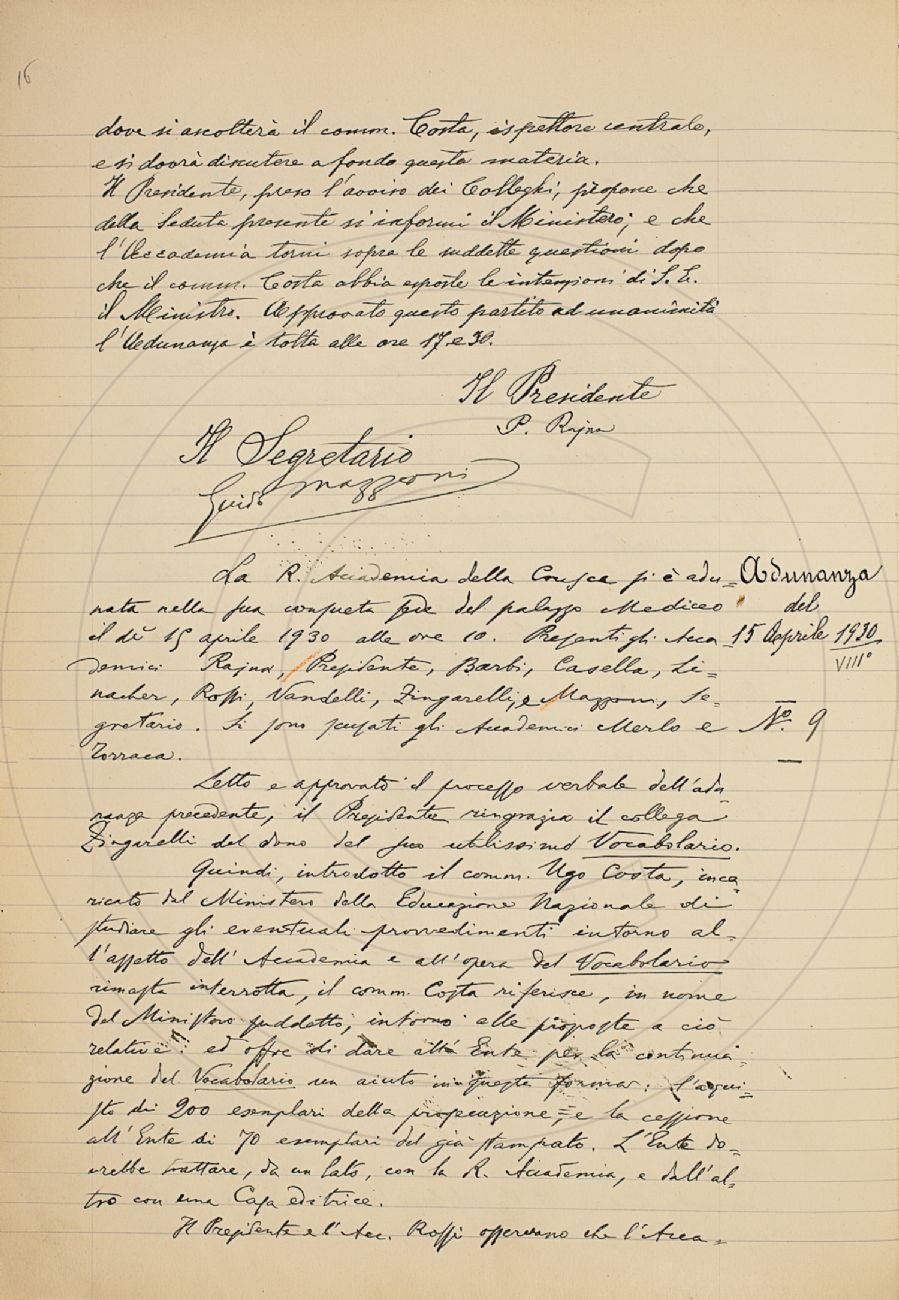 16
dove si ascolterà il comm. Costa, ispettore centrale,
e si dovrà discutere a fondo questa materia.
Il Presidente, preso l'avviso dei Colleghi, propone che
della Seduta presente si informi il Ministero; e che
l'Accademia torni sopra le suddette questioni dopo
che il comm. Costa abbia esposte le intenzioni di S. E.
il Ministro. Approvato questo partito ad unanimità
l'Adunanza è tolta alle ore 17 e 30.
Il Presidente
P. Rajna
Il Segretario
Guido Mazzoni
La R. Accademia della Crusca si è adu=
nata nella sua consueta sede del palazzo Mediceo
il dì 15 aprile 1930 alle ore 10. Presenti gli Acca
demici Rajna, Presidente, Barbi, Casella, Li=
nacher, Rossi, Vandelli, Zingarelli, e Mazzoni, Se-
gretario. Si sono scusati gli Accademici Merlo e
Torraca.
Adunanza
del
15 Aprile 1930
VIII°
N.° 9
Letto e approvato il processo verbale dell'adu-
nanza precedente, il Presidente ringrazia il collega
Zingarelli del dono del suo utilissimo Vocabolario.
Quindi, introdotto il comm. Ugo Costa, inca=
ricato dal Ministero della Educazione Nazionale di
studiare gli eventuali provvedimenti intorno al-
l'assetto dell'Accademia e all'opera del Vocabolario
rimasta interrotta, il comm. Costa riferisce, in nome
del Ministero suddetto, intorno alle proposte a ciò
relative: ed offre di dare all'Ente per la continua-
zione del Vocabolario un aiuto in questa forma: l'acqui=
sto di 200 esemplari della prosecuzione, e la cessione
all'Ente di 70 esemplari del già stampato. L'Ente do=
vrebbe trattare, da un lato, con la R. Accademia, e dall'al=
tro con una Casa editrice.
Il Presidente e l'Acc. Rossi osservano che l'Acca=